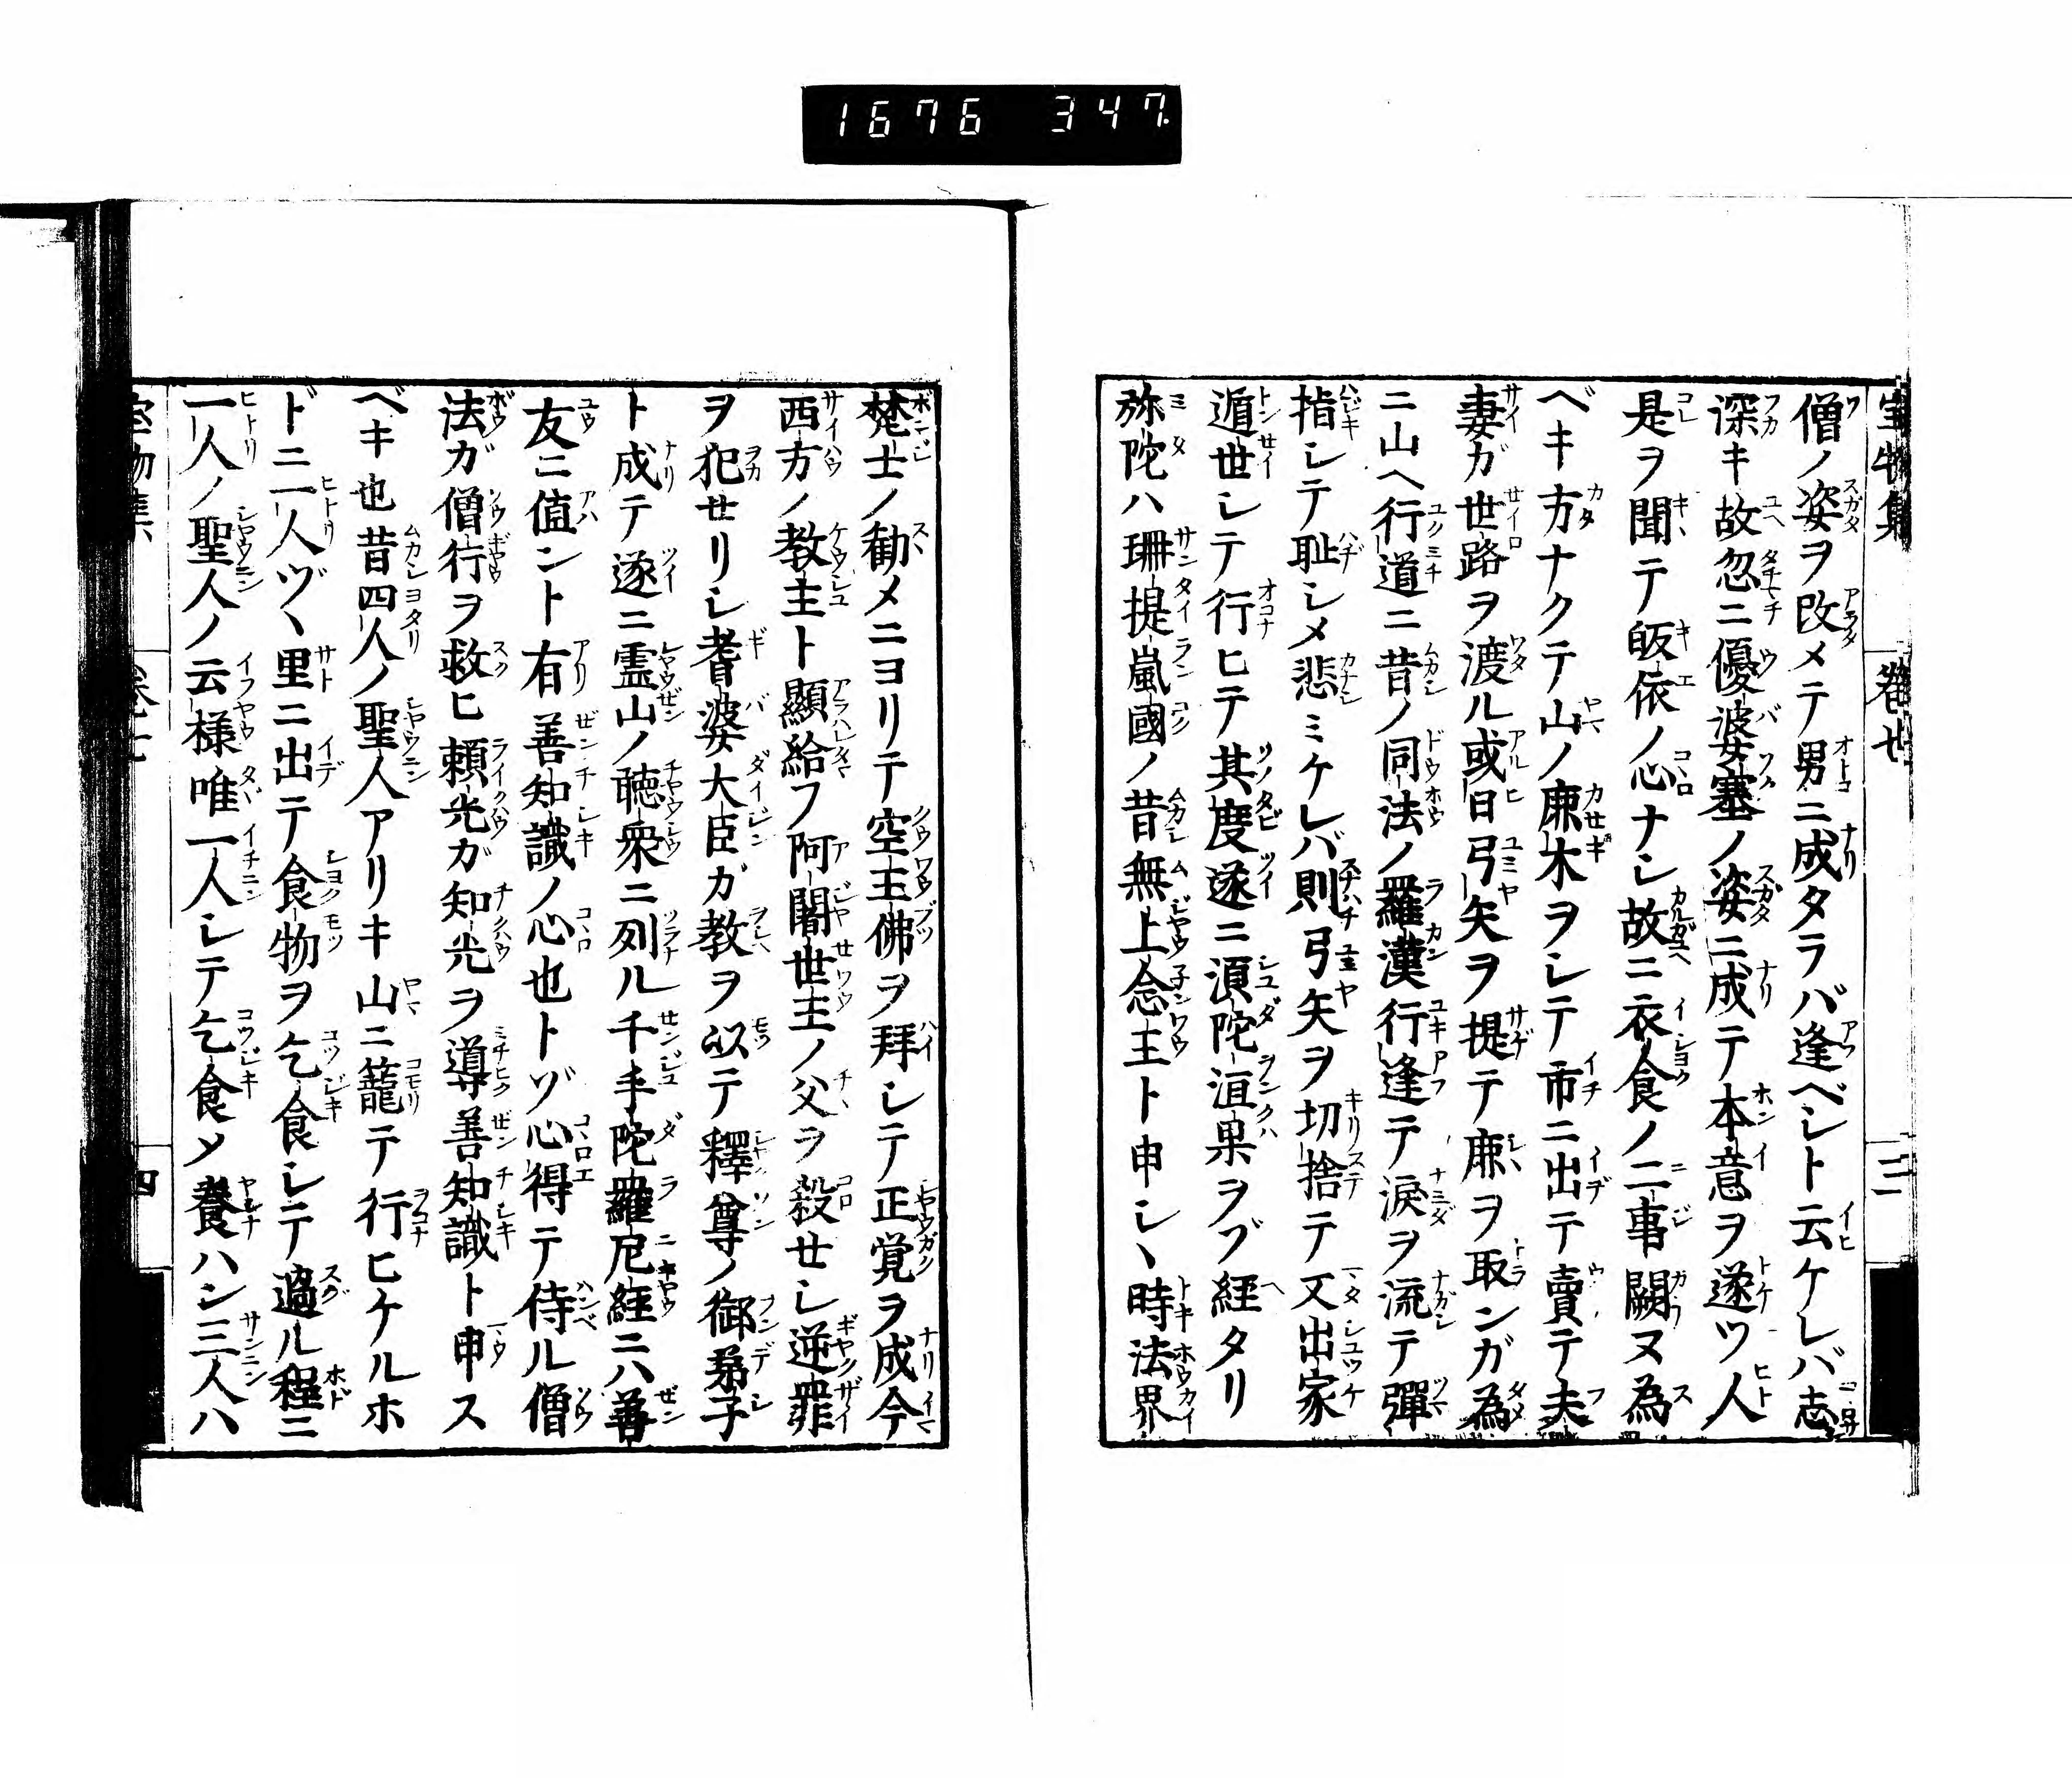 1676 347.
宝物集 巻七 三
僧ノ姿ヲ改メテ男ニ成タラバ逢ベシト云ケレバ志
深キ故忽ニ優婆塞ノ姿ニ成テ本意ヲ遂ツ人
是ヲ聞テ皈依ノ心ナシ故ニ衣食ノ二事闕ヌ為
ベキ方ナクテ山ノ麻木ヲシテ市ニ出テ賣テ夫
妻ガ世路ヲ渡ル或日弓矢ヲ提テ麻ヲ取ンガ為
ニ山ヘ行道ニ昔ノ同法ノ羅漢行逢テ涙ヲ流テ彈
指シテ耻シメ悲ミケレバ則弓矢ヲ切捨テ又出家
遁世シテ行ヒテ其度遂ニ須陀洹果ヲゾ經タリ
弥陀ハ珊提嵐國ノ昔無上念主ト申シヽ時法界
梵士ノ勧メニヨリテ空王佛ヲ拜シテ正覚ヲ成今
西方ノ教主ト顯給フ阿闍世主ノ父ヲ殺セシ逆罪
ヲ犯セリシ耆婆大臣ガ教ヲ以テ釋尊ノ御弟子
ト成テ逐ニ霊山ノ聴衆ニ列ル千手陀羅尼経ニハ善
友ニ値ント有善知識ノ心也トゾ心得テ侍ル僧
法ガ僧行ヲ救ヒ頼光ガ知光ヲ導善知識ト申ス
ベキ也昔四人ノ聖人アリキ山ニ籠テ行ヒケルホ
ドニ一人ヅヽ里ニ出テ食物ヲ乞食シテ過ル程ニ
一人ノ聖人ノ云様唯一人シテ乞食メ養ハン三人ハ
宝物集 巻七 四